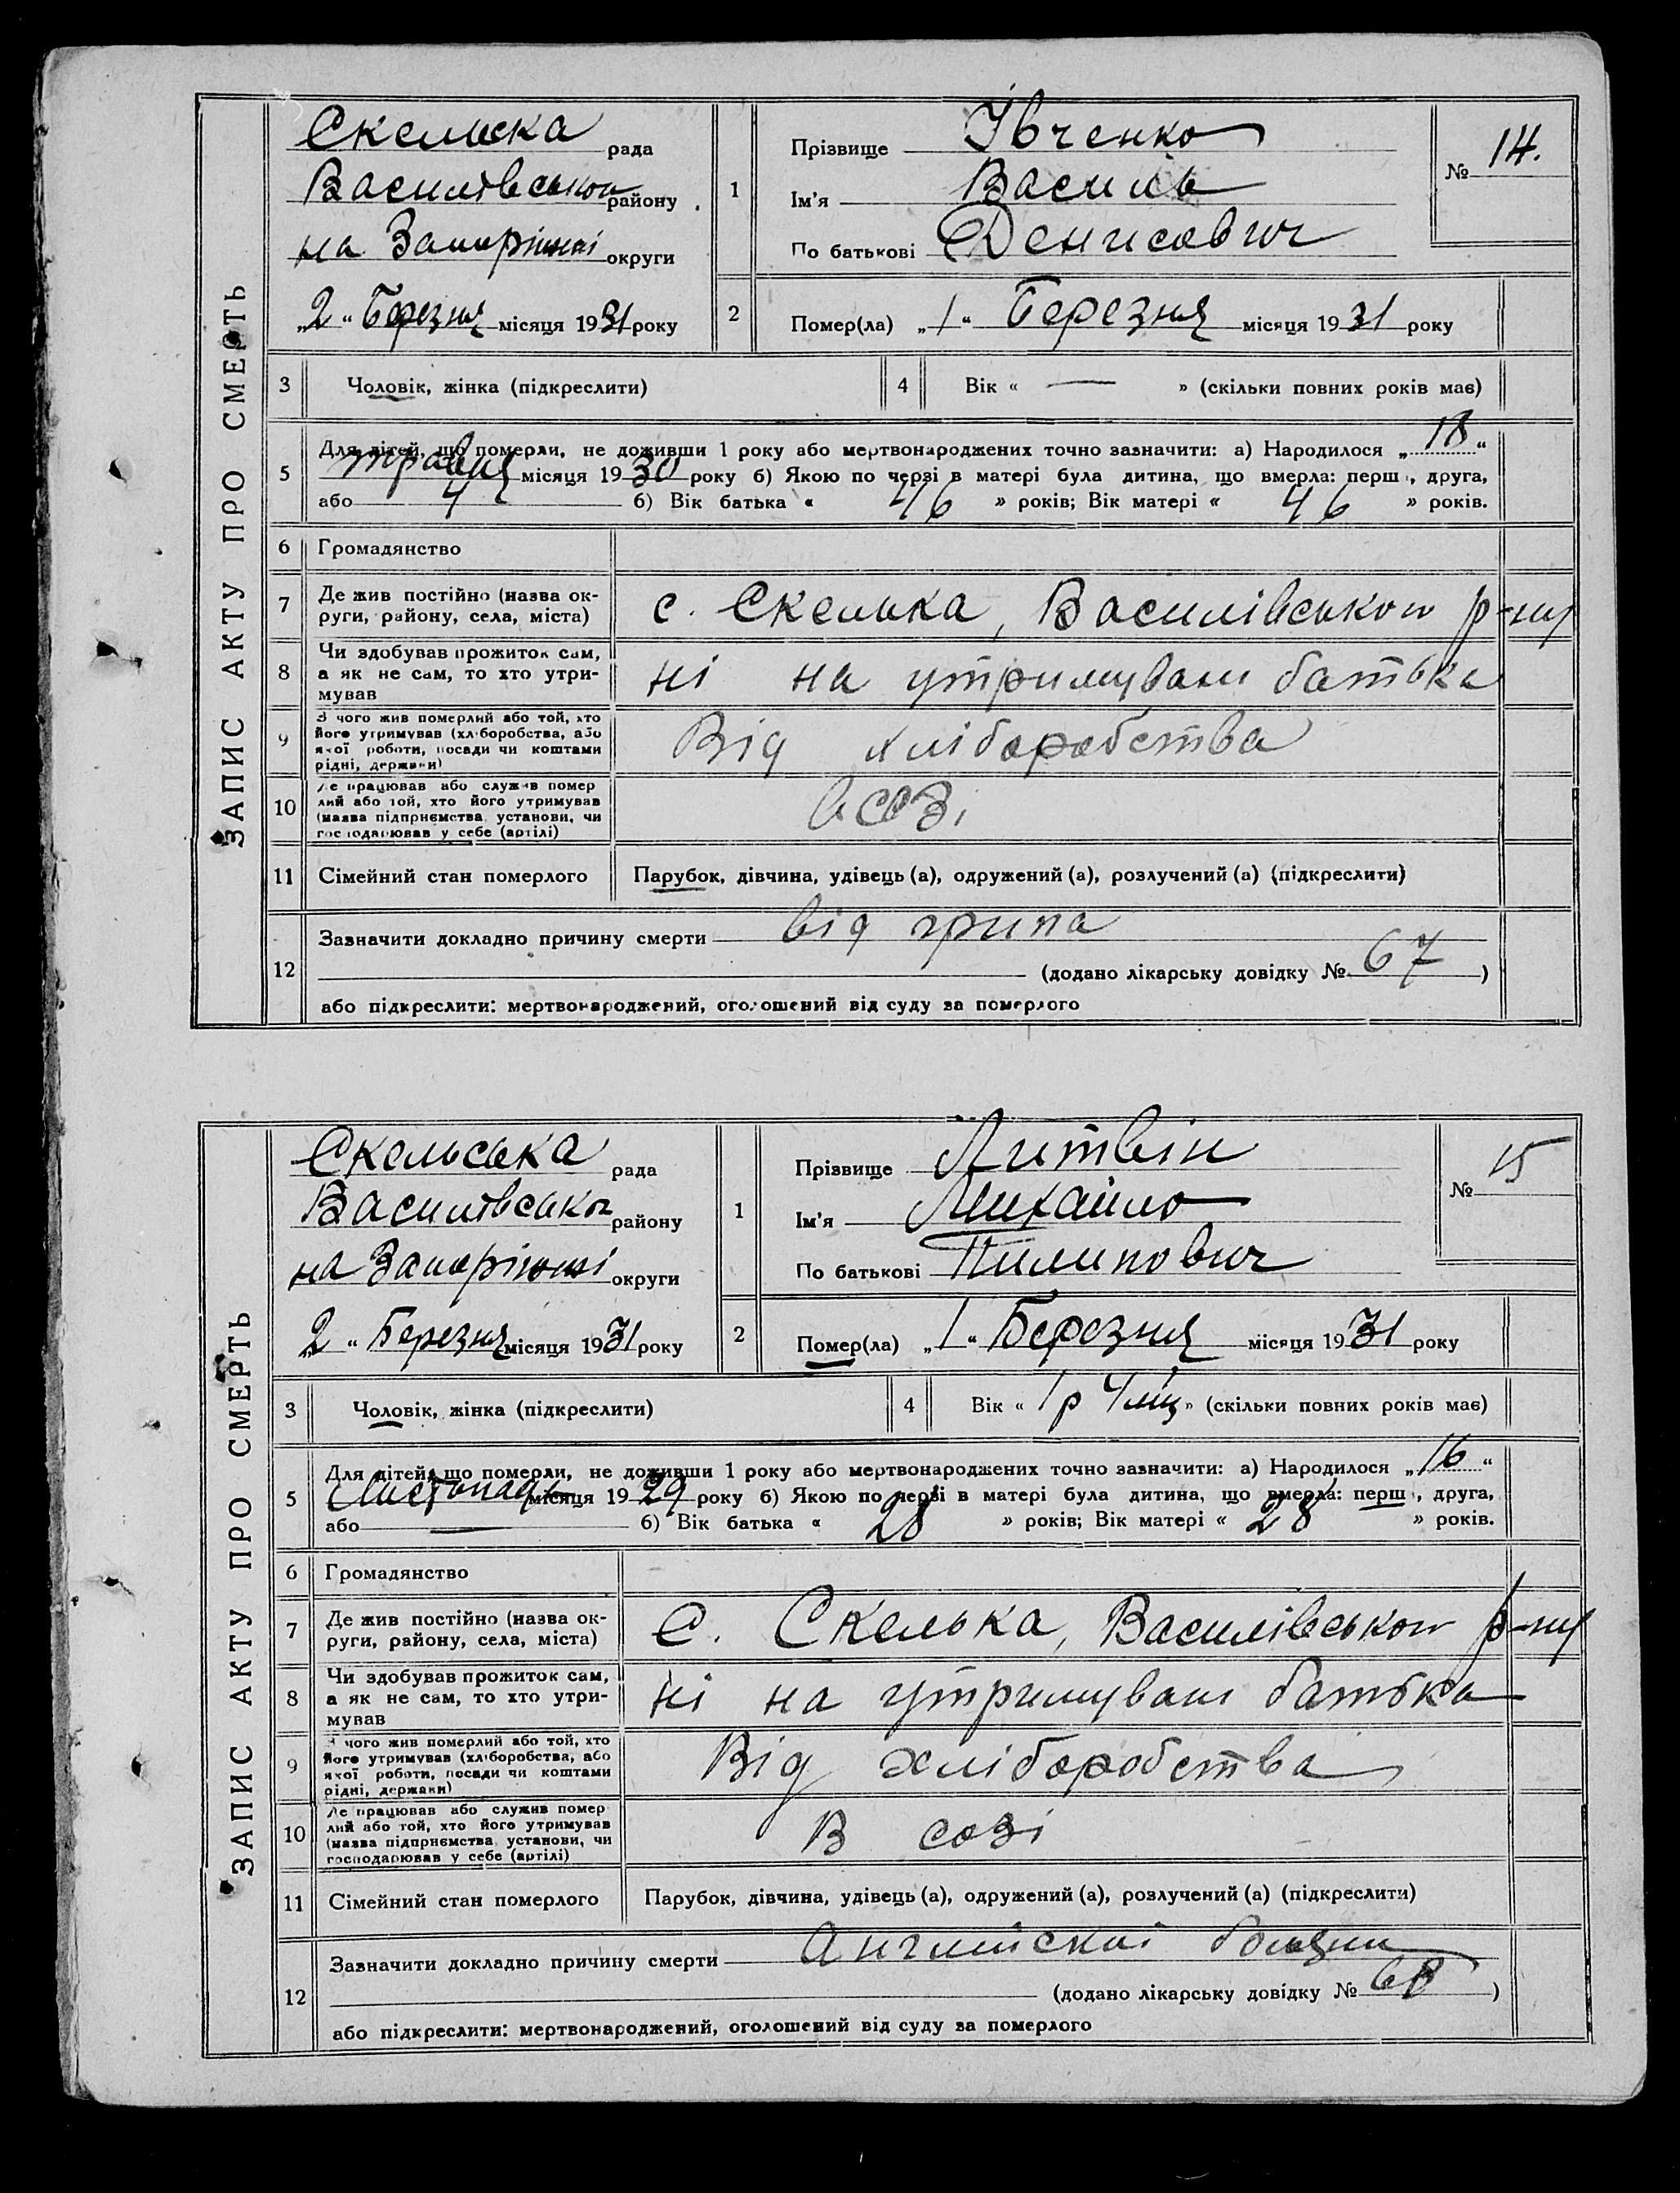 ЗАПИС АКТУ ПРО СМЕРТЬ
Скельська рада
Василівськом району
на Запоріжжі округи
„2“ Березня місяця 1931 року
1
Прізвище Івченко
Ім'я Василь
По батькові Денисович
№ 14.
2
Помер(ла) „1“ Березня місяця 1931 року
3 Чоловік, жінка (підкреслити)
4 Вік « — » (скільки повних років має)
5 Для дітей, що померли, не доживши 1 року або мертвонароджених точно зазначити: а) Народилося „18“
травня місяця 1930 року б) Якою по черзі в матері була дитина, що вмерла: перш , друга,
або 4 б) Вік батька « 46 » років; Вік матері « 46 » років.
6 Громадянство
7 Де жив постійно (назва ок-
руги, району, села, міста)
с. Скелька, Василівськом р-ну
8 Чи здобував прожиток сам,
а як не сам, то хто утри-
мував
ні на утримувані батька
9 З чого жив померлий або той, хто
його утримував (хліборобства, або
якої роботи, посади чи коштами
рідні, держави)
Від хліборобства
10 Де працював або служив помер
лий або той, хто його утримував
(назва підприємства, установи, чи
господарював у себе (артілі)
в СОЗі
11 Сімейний стан померлого
Парубок, дівчина, удівець (а), одружений (а), розлучений (а) (підкреслити)
12 Зазначити докладно причину смерти від грипа
(додано лікарську довідку № 67)
або підкреслити: мертвонароджений, оголошений від суду за померлого
ЗАПИС АКТУ ПРО СМЕРТЬ
Скельська рада
Василівсько району
на Запоріжжі округи
„2“ Березня місяця 1931 року
1
Прізвище Литвін
Ім'я Михайло
По батькові Пилипович
№ 15
2
Помер(ла) „1“ Березня місяця 1931 року
3 Чоловік, жінка (підкреслити)
4 Вік « 1 р 4 міц » (скільки повних років має)
5 Для дітей, що померли, не доживши 1 року або мертвонароджених точно зазначити: а) Народилося „16“
Листопада місяця 1929 року б) Якою по черзі в матері була дитина, що вмерла: перш , друга,
або — б) Вік батька « 28 » років; Вік матері « 28 » років.
6 Громадянство
7 Де жив постійно (назва ок-
руги, району, села, міста)
С. Скелька, Василівськом р-ну
8 Чи здобував прожиток сам,
а як не сам, то хто утри-
мував
ні на утримувані батька
9 З чого жив померлий або той, хто
його утримував (хліборобства, або
якої роботи, посади чи коштами
рідні, держави)
Від хліборобства
10 Де працював або служив помер
лий або той, хто його утримував
(назва підприємства, установи, чи
господарював у себе (артілі)
В созі
11 Сімейний стан померлого
Парубок, дівчина, удівець (а), одружений (а), розлучений (а) (підкреслити)
12 Зазначити докладно причину смерти Англійскої болізни
(додано лікарську довідку № 68)
або підкреслити: мертвонароджений, оголошений від суду за померлого